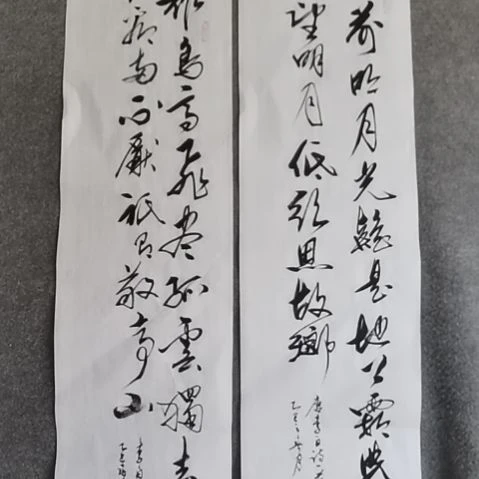 前明月光疑是地上霜舉
望明月低頭思故鄉
唐李白詩
乙巳
眾鳥高飛盡孤雲獨去
看兩不厭祇有敬亭山
李白
乙巳